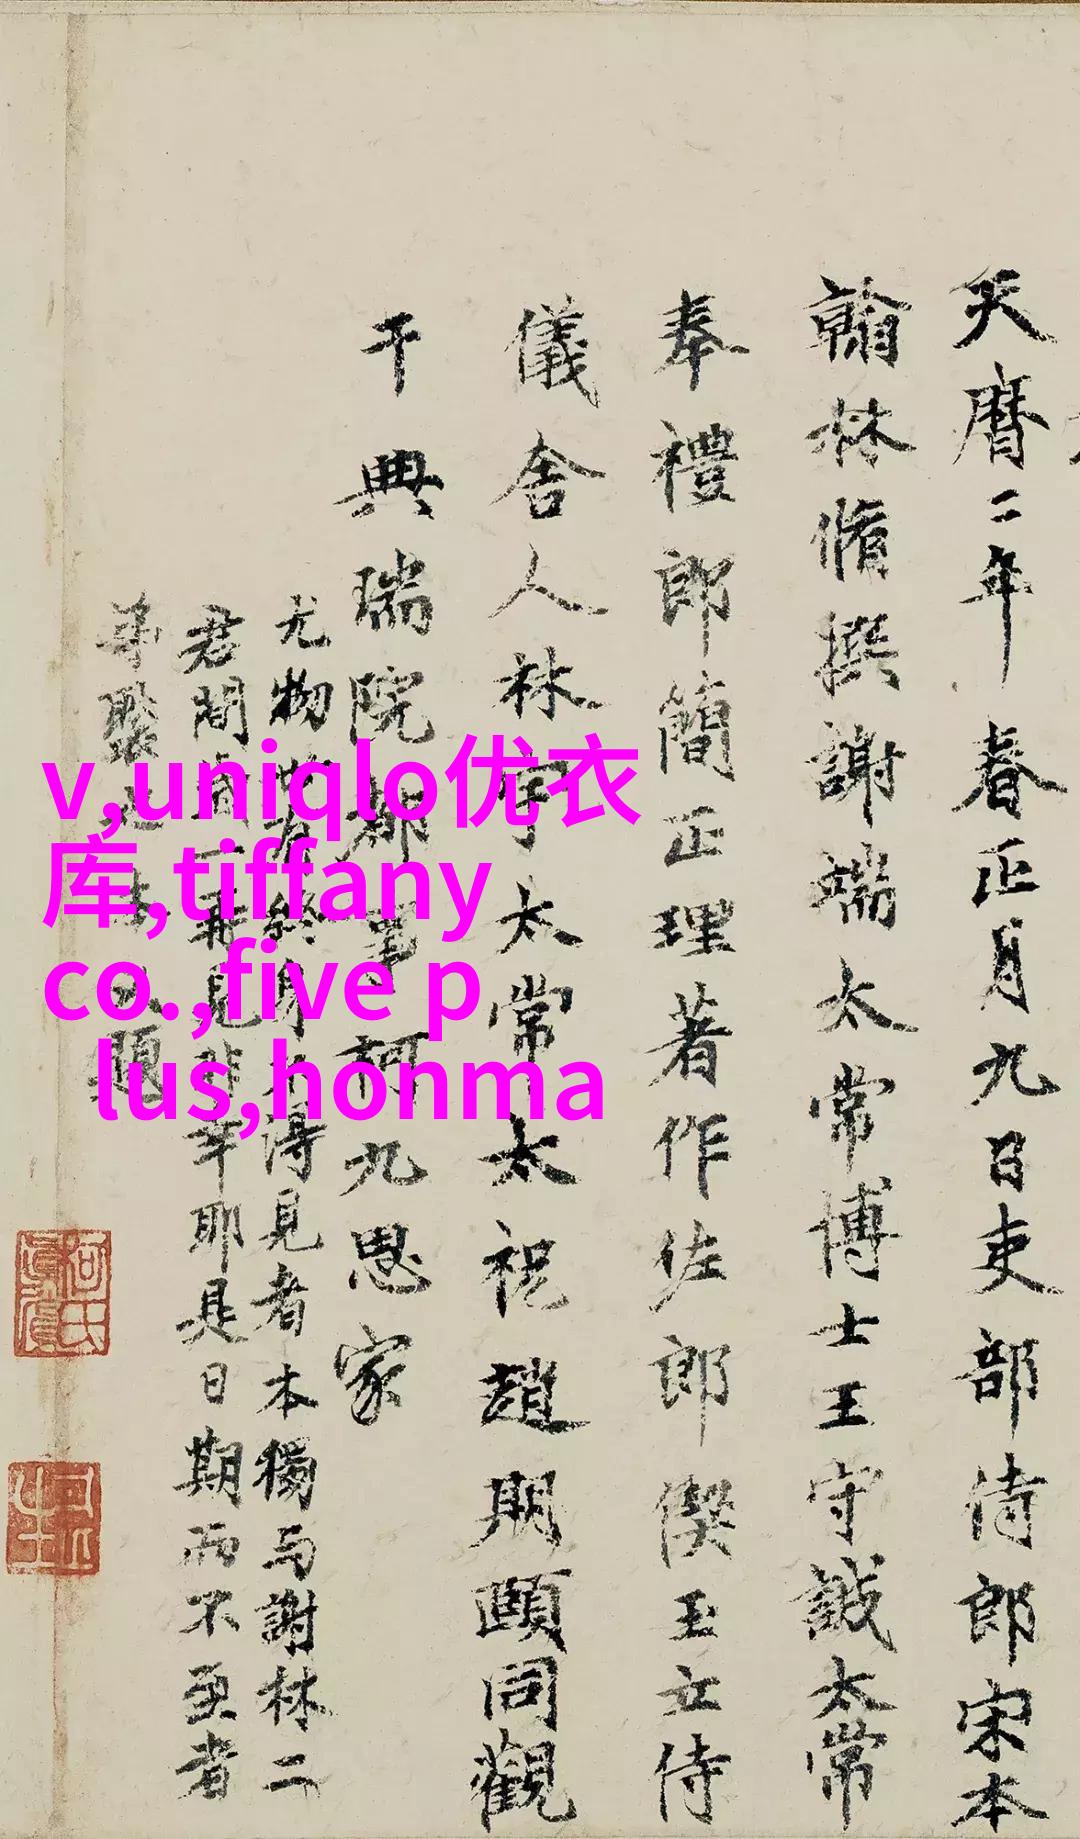 天曆二年春正月九日吏部侍郎宋本
翰林脩撰謝端太常博士王守誠太常
奉禮郎簡正理著作佐郎偰玉立侍
儀舍人林宇太常太祝趙期頤同觀
于典瑞院都事柯九思家
尤物世有終身不得見者本獨与謝林二
君間歲一再見非幸耶是日期而不至者
題
v,uniqlo优衣
库,tiffany
co.,five p
lus,honma